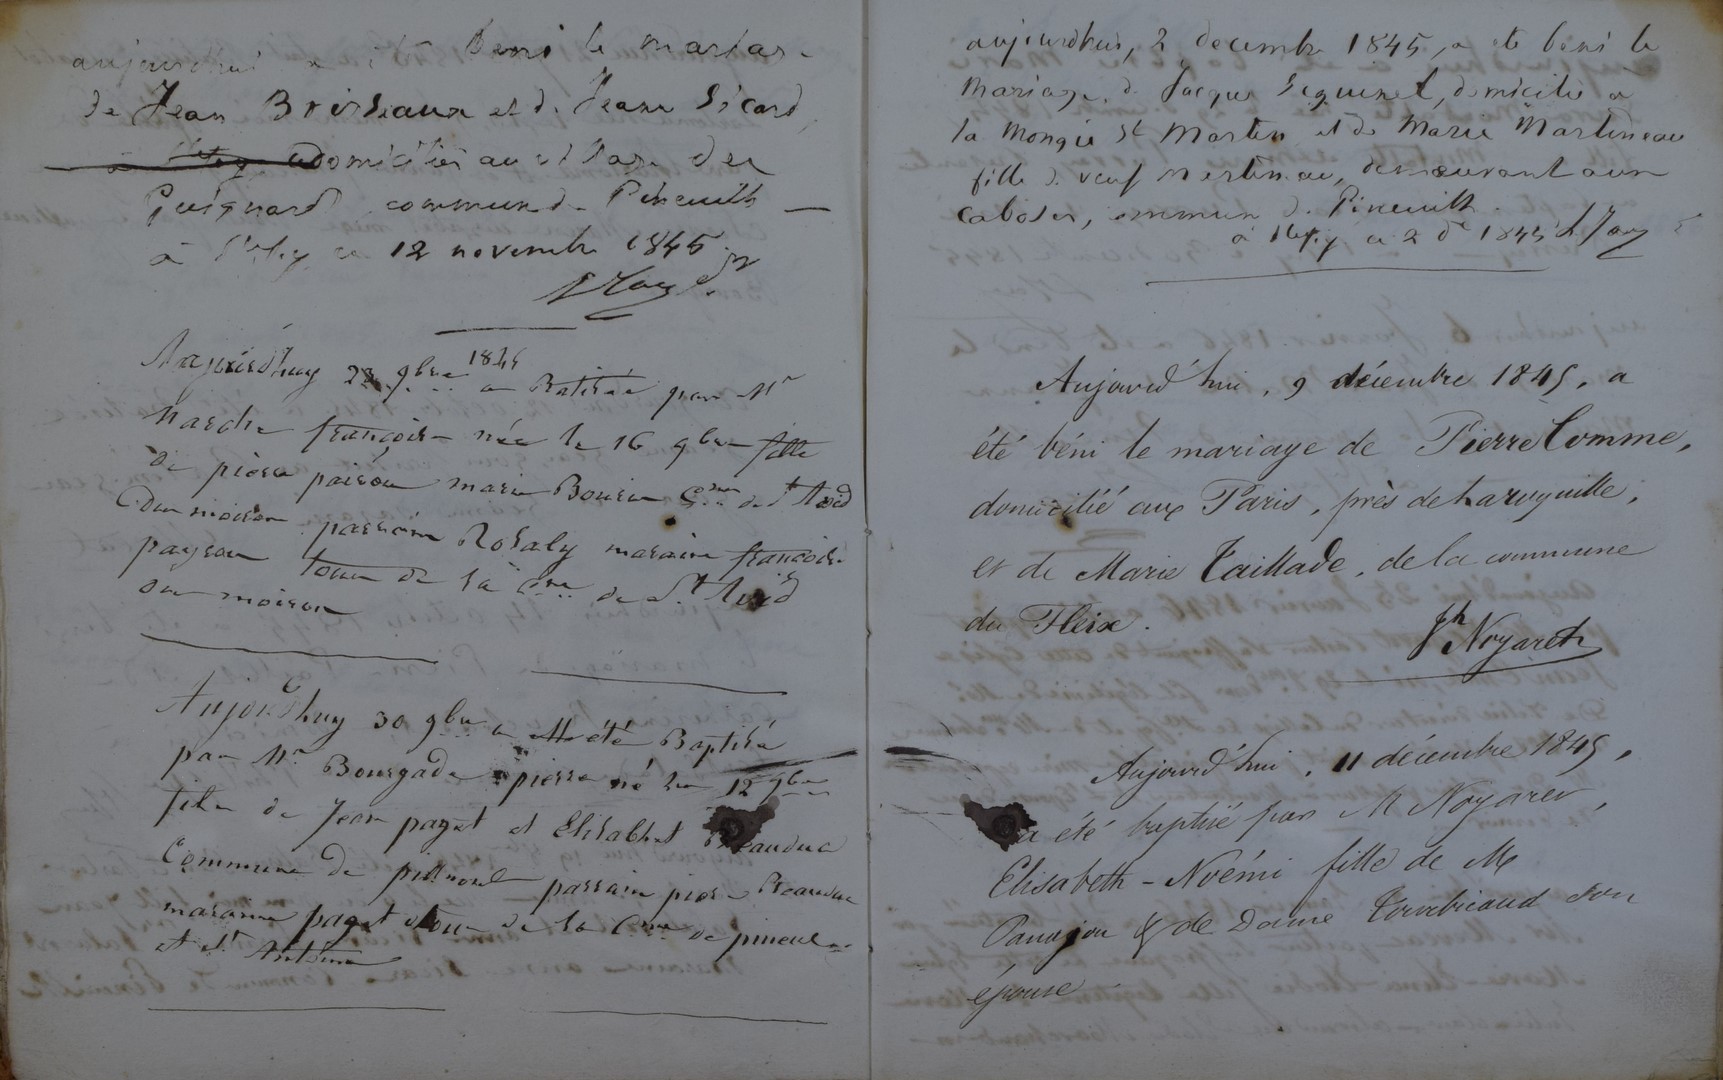 aujourdhui a été Beni le mariage
de Jean Boisseaux et de Jeanne Sicard,
domiciliés au village des
Guignard commune de Pineuilh —
à ce 12 novembre 1845
Aujourd'huy 23 9bre 1845 a Batisée par Mr
Marche françoise née le 16 9bre fille
de pière paison marie Bouria Cmne de St Avid
du moison passain Rosaly maraine françoise
paysan tous de la Cmne de St Avid
du moison
Aujourdhuy 30 9bre a été Baptisé
par Mr Bourgade pierre né le 12 9bre
fils de Jean paget et Elisabhet Beauduc
Commune de parrain piere Beauduc
maranne paget tous de la Cmne de pineul
et St Antoine
aujourdhui, 2 decembre 1845, a été beni le
Mariage de Jacques Seguinet, domicilié à
la Mongie St Martin et de Marie Martineau
fille de veuf Martineau, demeurant aux
Caboses, commune de Pineuilh.
à ce 2 de 1845
Aujourd'hui, 9 décembre 1845, a
été béni le mariage de Pierre Comme,
domicilié aux Paris, près de Larouquille,
et de Marie Taillade, de la commune
du Fleix.
Jh Noyaret
Aujourd'hui, 11 décembre 1845,
a été baptisé par M Noyaret,
Elisabeth-Noémi fille de M
Panajou & de Dame son
épouse